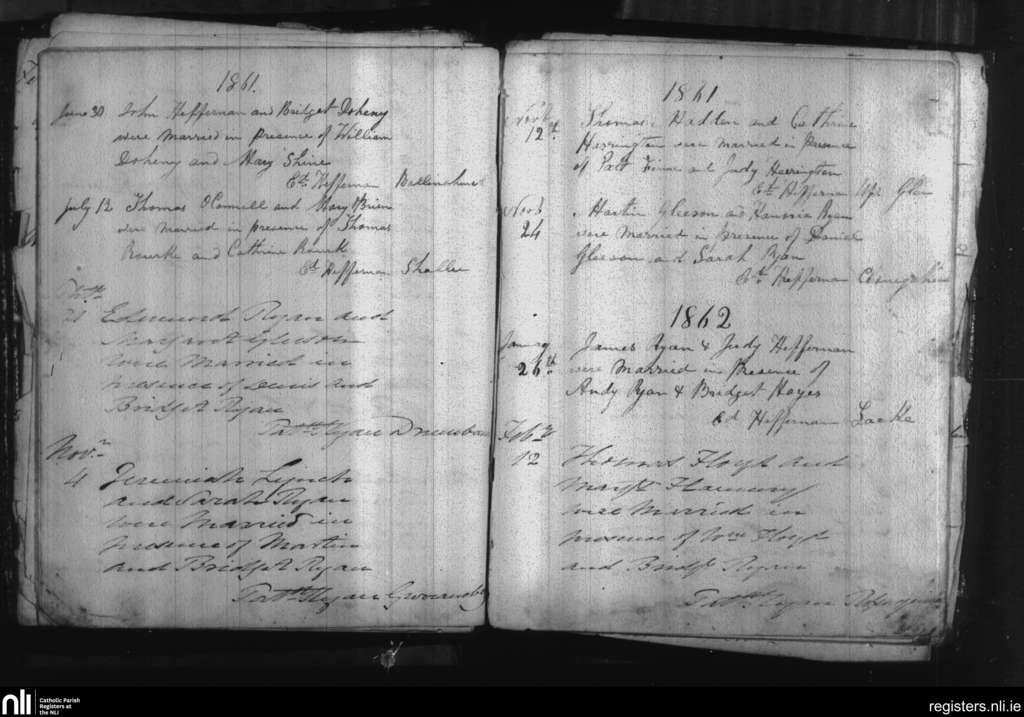 1861.
June 30 John Heffernan and Bridget Doheny
were married in presence of William
Doheny and Mary Shine
Ed. Heffernan
July 12 Thomas OConnell and Mary OBrien
were married in presence of Thomas
Rourke and Cathrine Rourke
Ed. Heffernan Shallee
21 Edmund Ryan and
Margaret Gleeson
were Married in
presence of Denis and
Bridget Ryan
Patk Ryan
Nov.r
4 Jeremiah Lynch
and Sarah Ryan
were Married in
presence of Martin
and Bridget Ryan
Patk Ryan
1861
Novb
12th Thomas Hadden and Cathrine
Harrington were married in Presence
of Patt and Judy Harrington
Ed Heffernan Glen
Novb
24 Martin Gleeson and Hanoria Ryan
were married in presence of Daniel
Gleeson and Sarah Ryan
Ed. Heffernan
1862
January
26th James Ryan & Judy Heffernan
were Married in Presence of
Andy Ryan & Bridget Hayes
Ed Heffernan Lacka
Feb.y
12 Thomas Floyd and
Margt Flannery
were Married in
presence of Wm Floyd
and Bridgt Ryan
Patk Ryan
nli Catholic Parish
Registers at
the NLI
registers.nli.ie